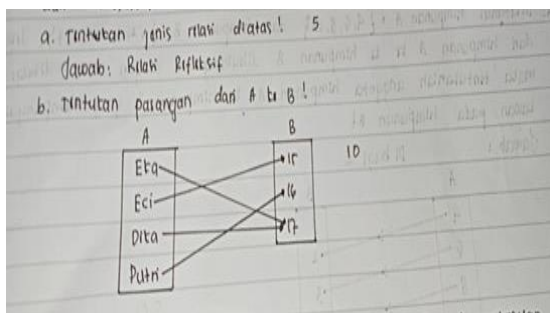 a. Tentukan jenis relasi diatas! 5
Jawab: Relasi Refleksif
b. Tentukan pasangan dari A ke B!
A B
Eka 15 10
Eci 16
Dita 17
Putri